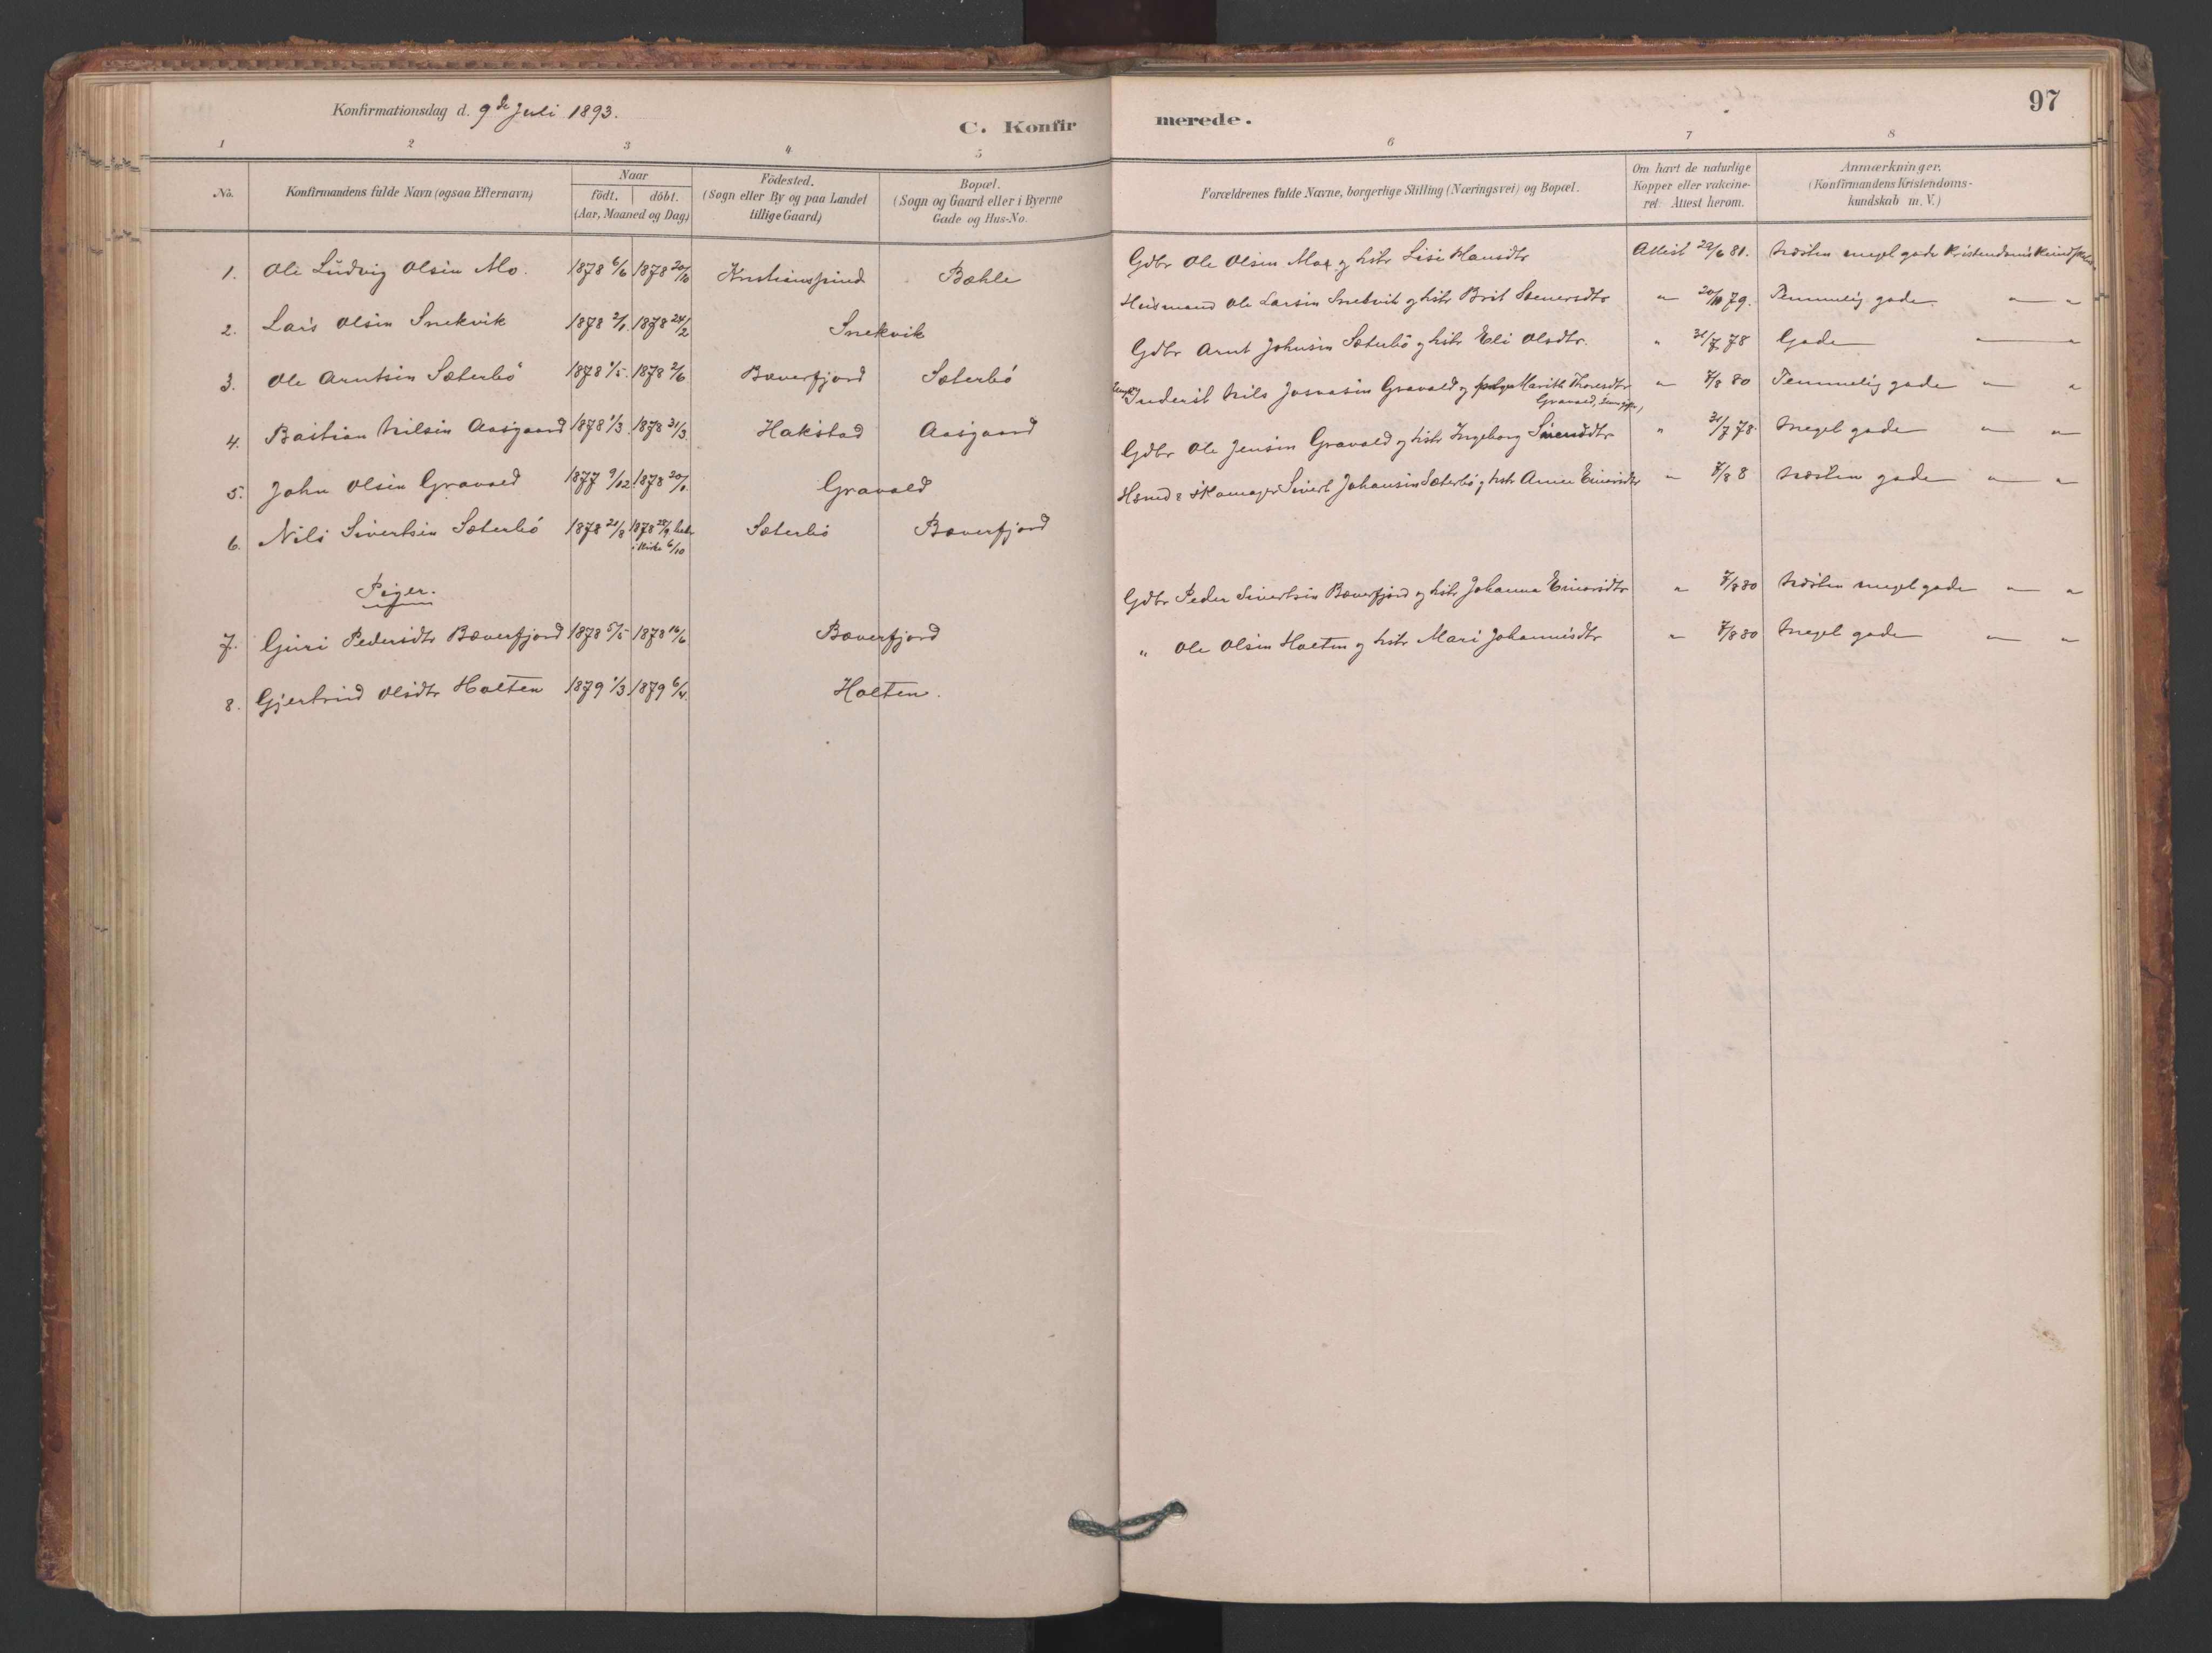 Konfirmationsdag d. 9de Juli 1893.
C. Konfir
1 2 3 4 5
No.
Konfirmandens fulde Navn (ogsaa Efternavn)
Naar
födt. döbt.
(Aar, Maaned og Dag)
Födested.
(Sogn eller By og paa Landet
tillige Gaard)
Bopæl.
(Sogn og Gaard eller i Byerne
Gade og Hus-No.
1. Ole Ludvig Olsen Mo. 1878 6/6 1878 20/10 Kristianssund Bæhle
2. Lars Olsen Snekvik 1878 2/1. 1878 24/2 Snekvik
3. Ole Arntsen Sæterbö 1878 1/5. 1878 2/6 Bæverfjord Sæterbö
4. Bastian Nilsen Aasgaard 1878 1/3. 1878 31/3. Hakstad Aasgaard
5. John Olsen Gravald 1877 9/12. 1878 20/1. Gravald
6. Nils Sivertsen Sæterbö 1878 21/8 1878 25/9 bekr. Sæterbö Bæverfjord
i Kirke 6/10
Piger.
7. Guri Pedersdtr Bæverfjord 1878 5/5 1878 16/6 Bæverfjord
8. Gjertrud Olsdtr Holten 1879 1/3. 1879 6/4. Holten.
merede.
97
6 7 8
Forældrenes fulde Navne, borgerlige Stilling (Næringsvei) og Bopæl.
Om havt de naturlige
Kopper eller vakcine-
ret. Attest herom.
Anmærkninger.
(Konfirmandens Kristendoms-
kundskab m. V.)
Gdbr Ole Olsen Mo og hstr Lise Hansdtr Attest 22/6 81. Næsten meget gode Kristendomskundskab
Husmand Ole Larsen Snekvik og hstr Brit Stenersdtr " 20/10 79. Temmelig gode " "
Gdbr Arnt Johnsen Sæterbö og hstr Eli Olsdtr. " 31/7 78 Gode " "
Inderst Nils Jonasen Gravald og pige Marith Thoresdtr " 7/8 80 Temmelig gode " "
Gravald,
Gdbr Ole Jensen Gravald og hstr Ingeborg Sivertsdtr " 31/7 78. Meget gode " "
Hsmd & Skomager Sivert Johansen Sæterbö og hstr Anne Einersdtr " 7/8 8 Næsten gode " "
Gdbr Peder Sivertsen Bæverfjord og hstr Johanna Einarsdtr " 7/8 80 Næsten meget gode " "
" Ole Olsen Holten og hstr Mari Johannesdtr " 7/8 80 Meget gode " "